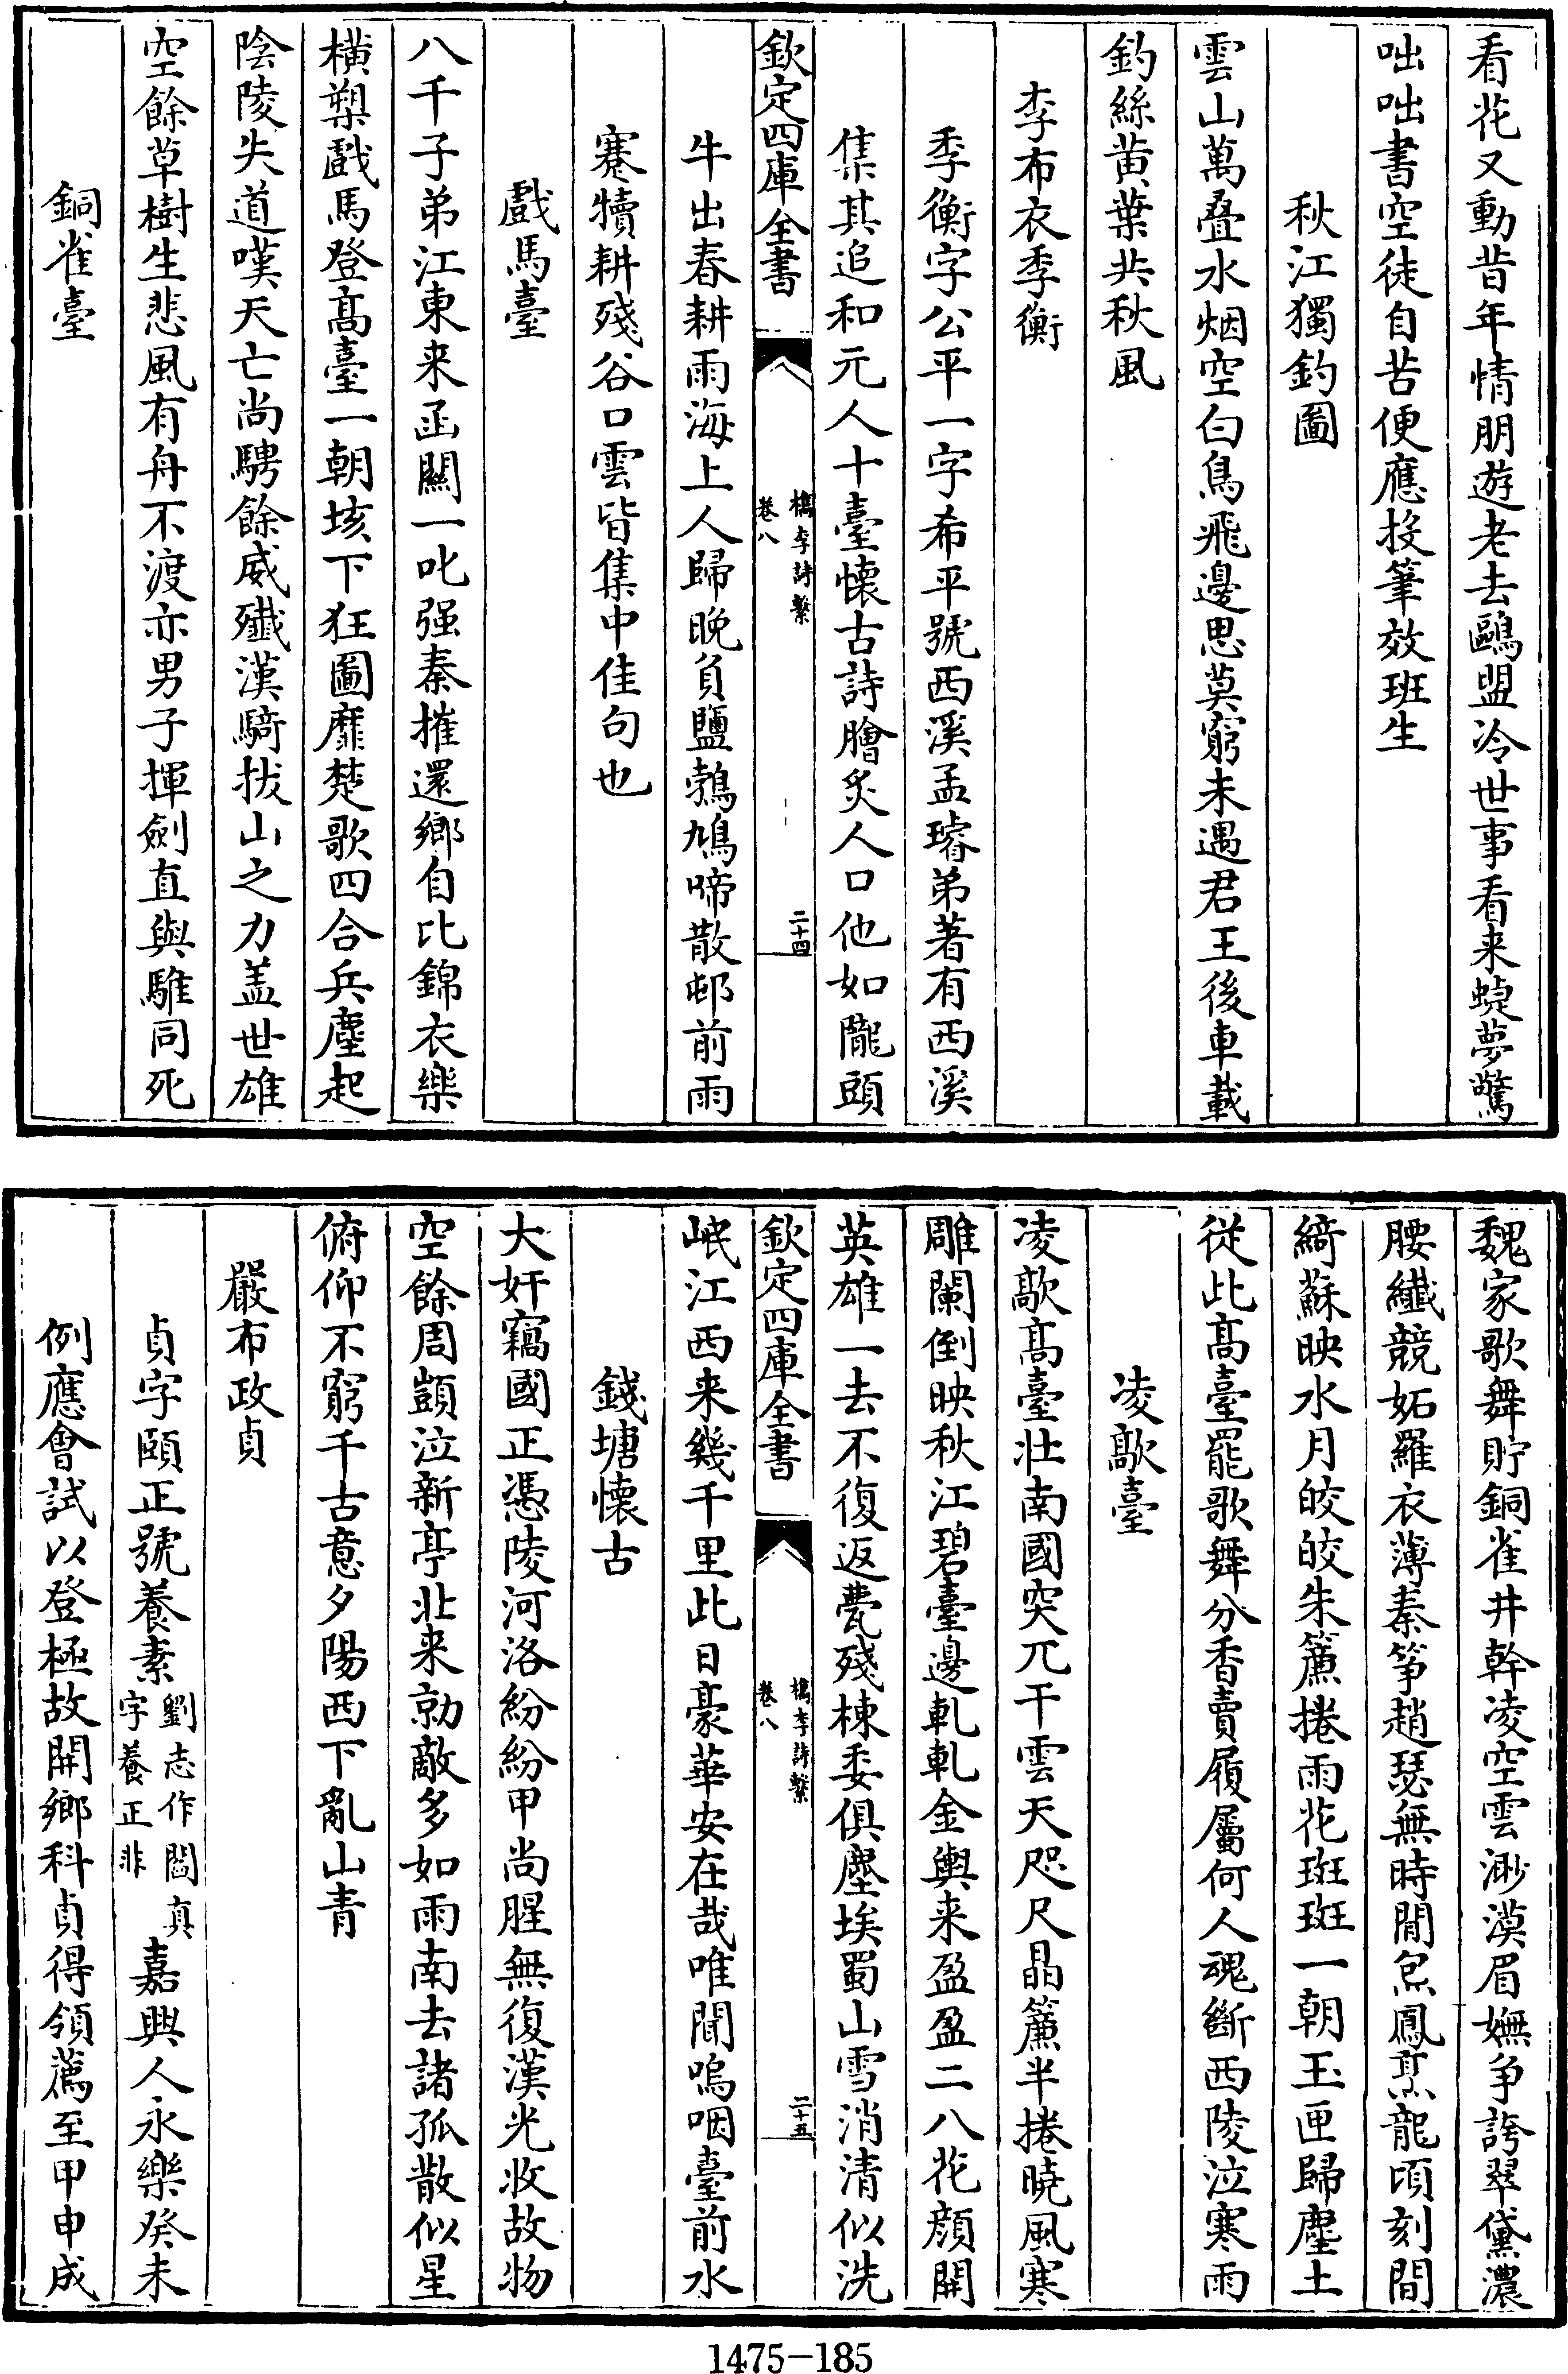 看花又動昔年情朋遊老去鷗盟冷世事看来蜨夢驚
咄咄書空徒自苦便應投筆效班生
秋江獨釣圖
雲山萬叠水烟空白鳥飛邊思莫窮未遇君王後車載
釣絲黄葉共秋風
李布衣季衡
季衡字公平一字希平號西溪孟璿弟著有西溪
集其追和元人十臺懷古詩膾炙人口他如隴頭
欽定四庫全書
檇李詩繫
卷八
二十四
牛出春耕雨海上人歸晚負鹽鵓鳩啼散邨前雨
蹇犢耕殘谷口雲皆集中佳句也
戲馬臺
八千子弟江東来函關一叱强秦摧還鄉自比錦衣樂
横槊戲馬登髙臺一朝垓下狂圖靡楚歌四合兵塵起
陰陵失道嘆天亡尚騁餘威殲漢騎拔山之力盖世雄
空餘草樹生悲風有舟不渡亦男子揮劍直與騅同死
銅雀臺
魏家歌舞貯銅雀井幹凌空雲渺漠眉嫵争誇翠黛濃
腰纎競妬羅衣薄秦筝趙瑟無時閒炰鳳烹龍頃刻間
綺蘇映水月皎皎朱簾捲雨花斑斑一朝玉匣歸塵土
從此髙臺罷歌舞分香賣履屬何人魂斷西陵泣寒雨
凌歊臺
凌歊髙臺壯南國突兀干雲天咫尺晶簾半捲曉風寒
雕闌倒映秋江碧臺邊軋軋金輿来盈盈二八花顔開
英雄一去不復返甍殘棟委俱塵埃蜀山雪消清似洗
欽定四庫全書
檇李詩繫
卷八
二十五
岷江西来幾千里此日豪華安在哉唯聞嗚咽臺前水
錢塘懷古
大奸竊國正憑陵河洛紛紛甲尚腥無復漢光收故物
空餘周顗泣新亭北来勍敵多如雨南去諸孤散似星
俯仰不窮千古意夕陽西下亂山青
嚴布政貞
貞字頤正號養素劉志作閻真字養正非嘉興人永樂癸未
例應會試以登極故開鄉科貞得領薦至甲申成
1475-185